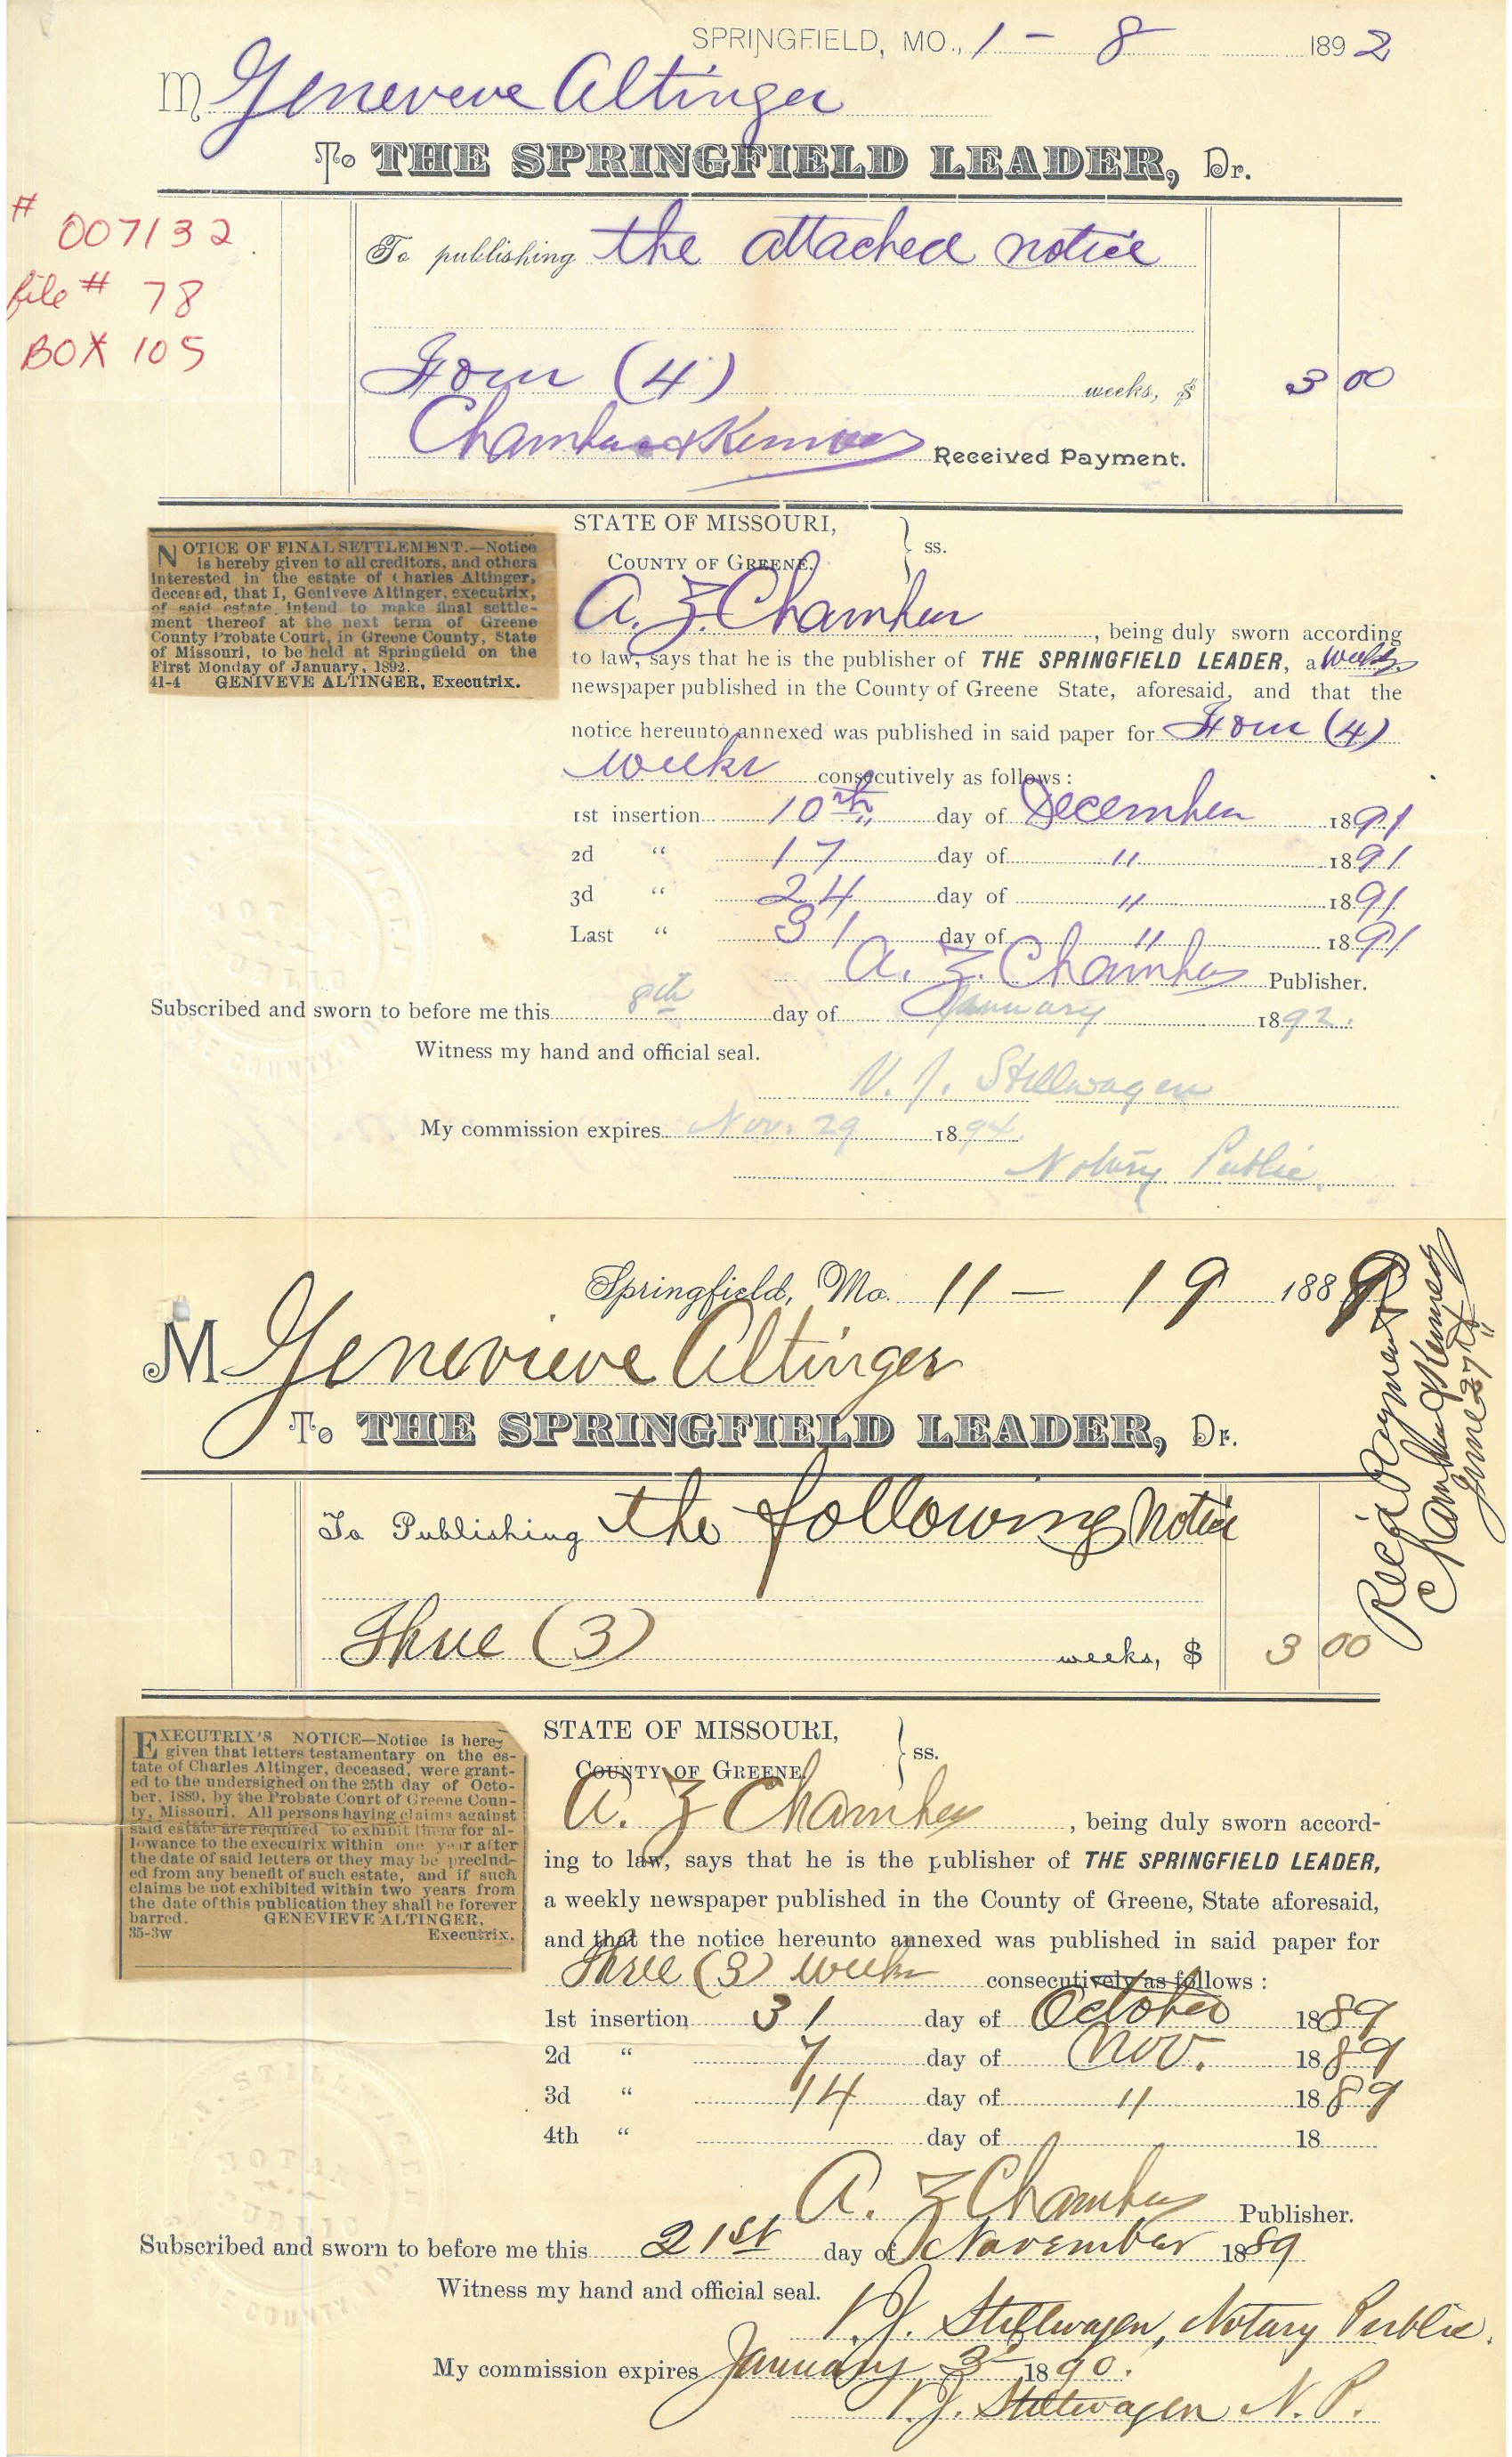 SPRINGFIELD, MO., 1 - 8 1892
M Genevieve Altinger
To THE SPRINGFIELD LEADER, Dr.
# 007132
file # 78
BOX 105
To publishing the attached notice
Four (4) weeks, $ 3 00
Received Payment.
STATE OF MISSOURI,
COUNTY OF GREENE. } ss.
NOTICE OF FINAL SETTLEMENT.—Notice
is hereby given to all creditors, and others
interested in the estate of Charles Altinger,
deceased, that I, Geniveve Altinger, executrix,
of said estate, intend to make final settle-
ment thereof at the next term of Greene
County Probate Court, in Greene County, State
of Missouri, to be held at Springfield on the
First Monday of January, 1892.
41-4 GENIVEVE ALTINGER, Executrix.
A. Z. Chambers, being duly sworn according
to law, says that he is the publisher of THE SPRINGFIELD LEADER, a weekly
newspaper published in the County of Greene State, aforesaid, and that the
notice hereunto annexed was published in said paper for Four (4)
weeks consecutively as follows:
1st insertion 10th day of December 1891
2d " 17 day of " 1891
3d " 24 day of " 1891
Last " 31 day of " 1891
A. Z. Chambers Publisher.
Subscribed and sworn to before me this 8th day of January 1892.
Witness my hand and official seal.
V. J. Stillwagen
My commission expires Nov. 29 1894.
Notary Public.
Springfield, Mo. 11 - 19 1889
M Genevieve Altinger
To THE SPRINGFIELD LEADER, Dr.
To Publishing the following Notice
Three (3) weeks, $ 3 00
Rec'd Payment
June 27th
STATE OF MISSOURI,
COUNTY OF GREENE. } ss.
EXECUTRIX'S NOTICE—Notice is here-
given that letters testamentary on the es-
tate of Charles Altinger, deceased, were grant-
ed to the undersighed on the 25th day of Octo-
ber, 1889, by the Probate Court of Greene Coun-
ty, Missouri. All persons having claims against
said estate are required to exhibit them for al-
lowance to the executrix within one year after
the date of said letters or they may be preclud-
ed from any benefit of such estate, and if such
claims be not exhibited within two years from
the date of this publication they shall be forever
barred. GENEVIEVE ALTINGER,
35-3w Executrix.
A. Z Chambers, being duly sworn accord-
ing to law, says that he is the publisher of THE SPRINGFIELD LEADER,
a weekly newspaper published in the County of Greene, State aforesaid,
and that the notice hereunto annexed was published in said paper for
Three (3) weeks consecutively as follows:
1st insertion 31 day of October 1889
2d " 7 day of Nov. 1889
3d " 14 day of " 1889
4th " day of 18
A. Z Chambers Publisher.
Subscribed and sworn to before me this 21st day of November 1889
Witness my hand and official seal.
V. J. Stillwagen, Notary Public.
My commission expires January 3d 1890.
V. J. Stillwagen N. P.